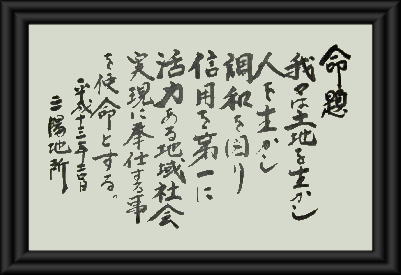 命題
我々は土地を生かし
人を生かし
調和を図り
信用を第一に
活力ある地域社会
実現に奉仕する事
を使命とする。
平成十三年 日
三陽地所